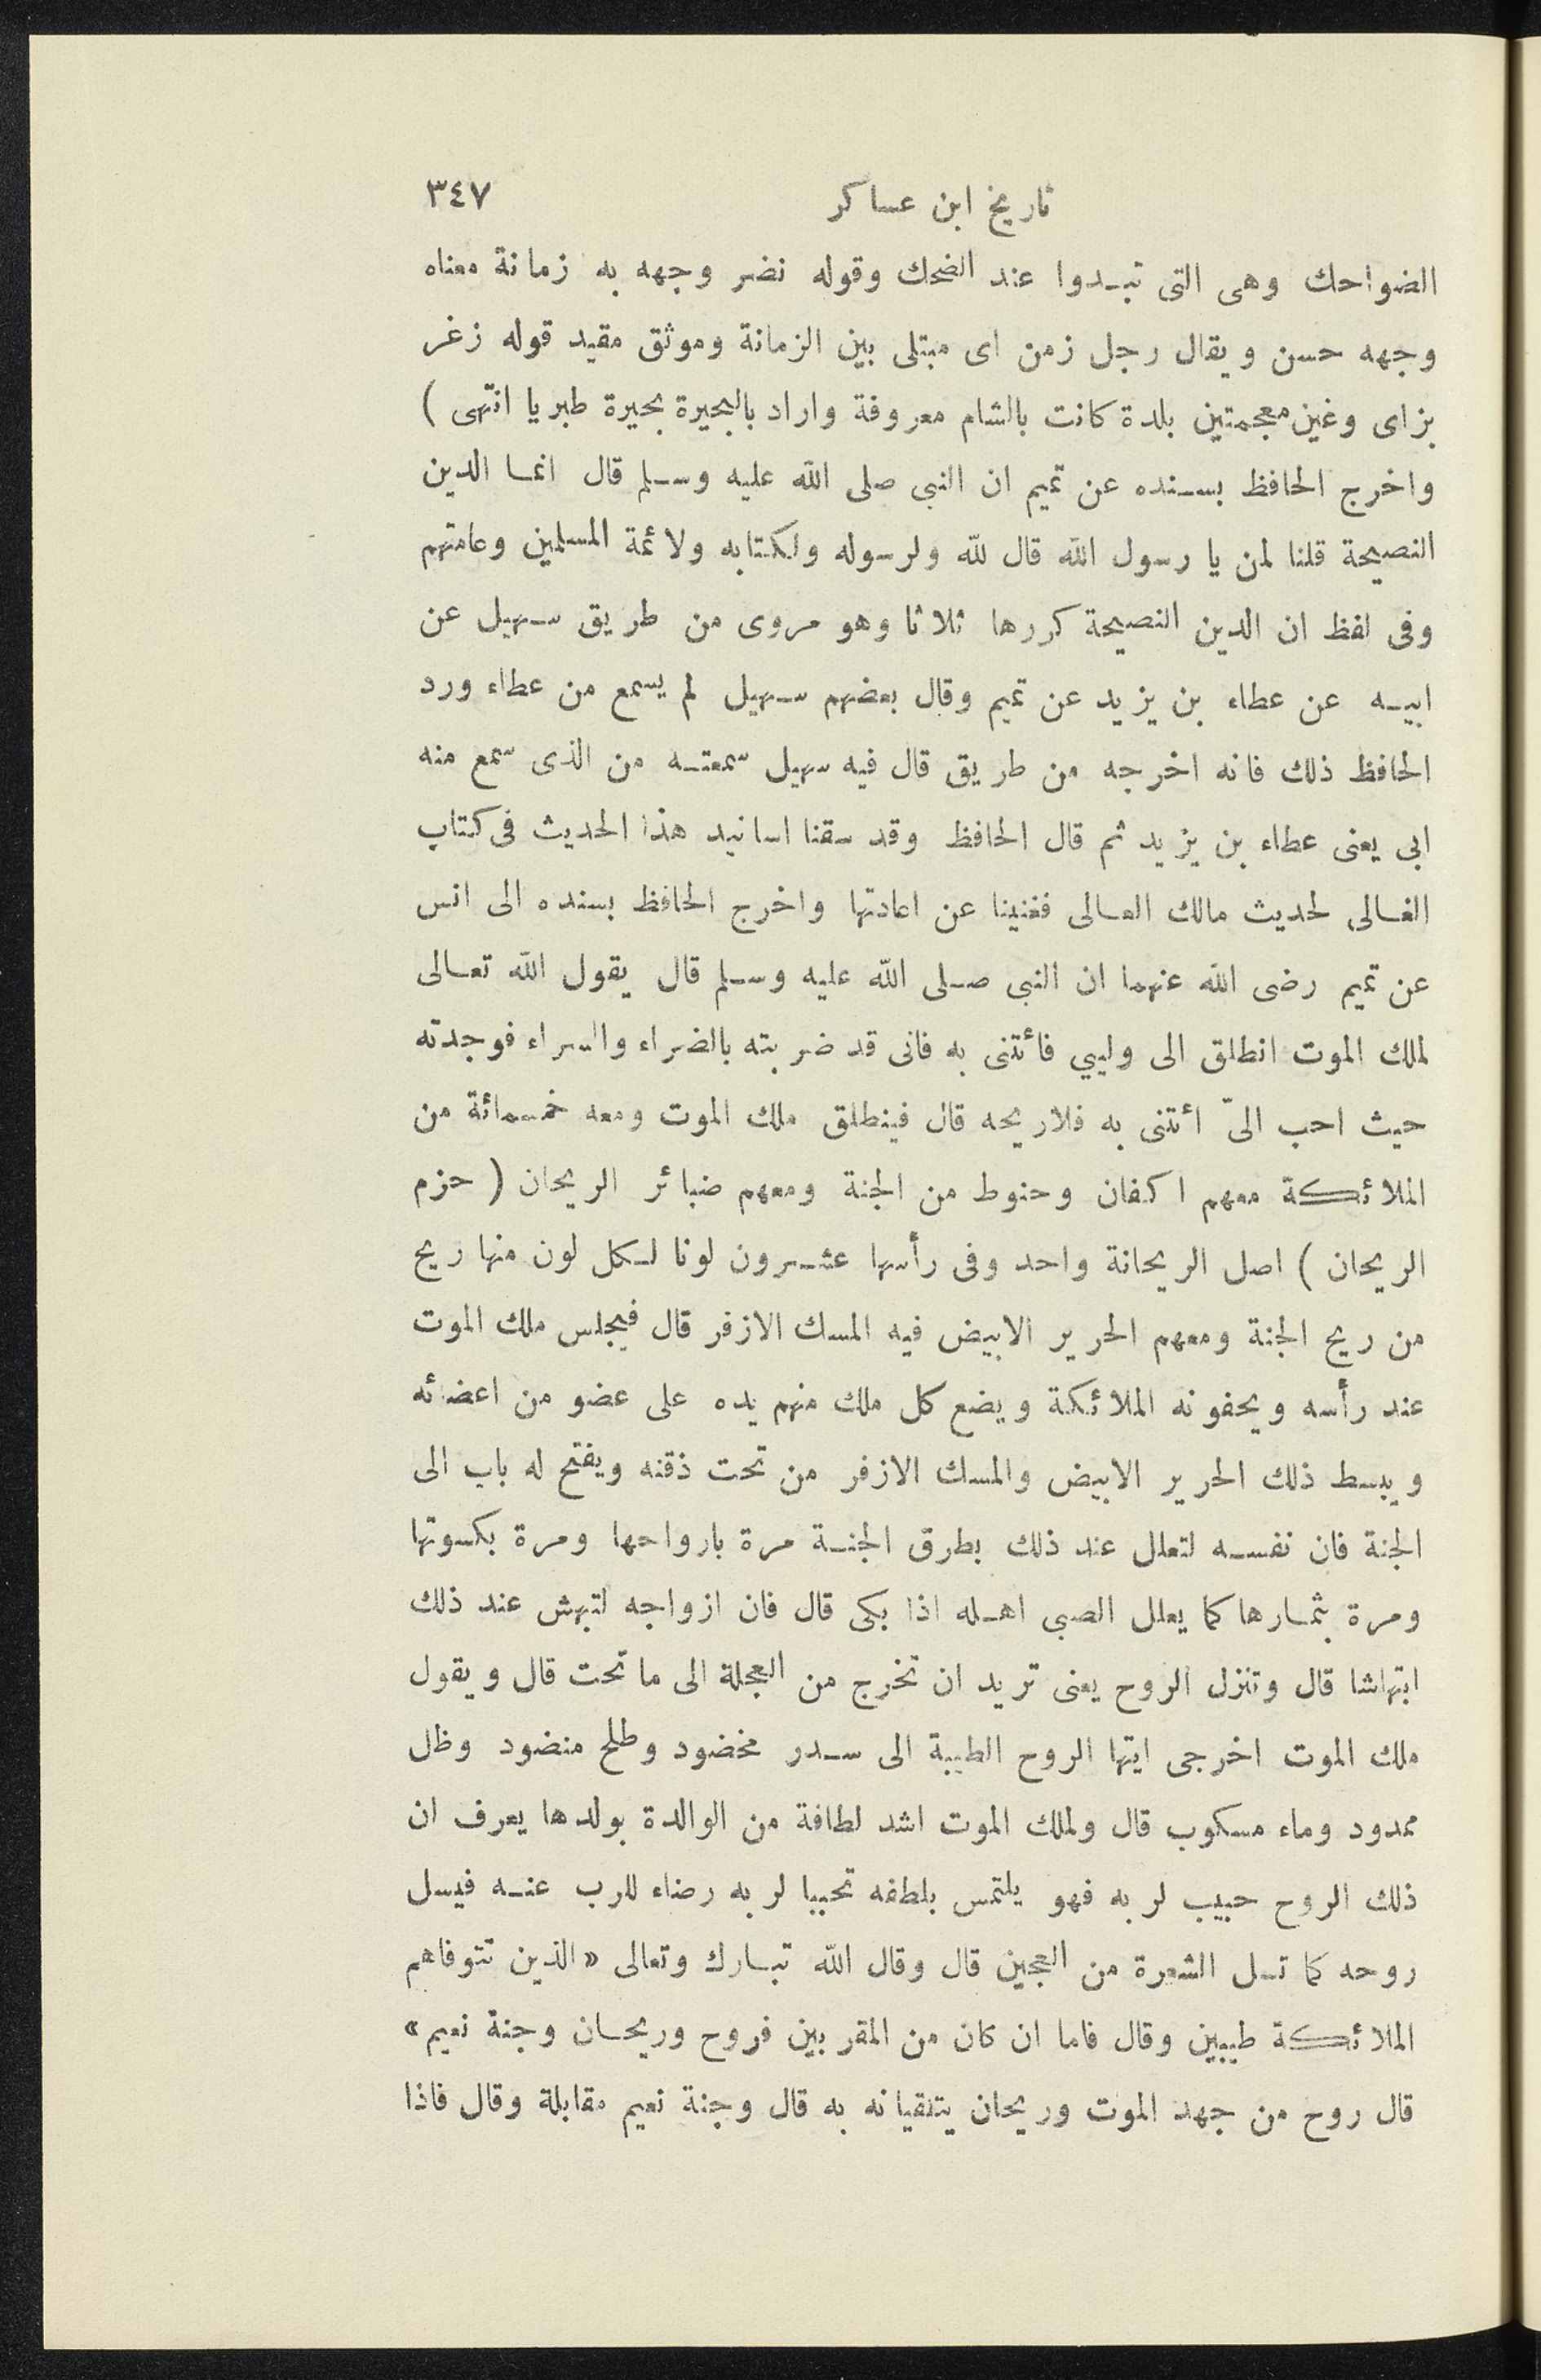 تاريخ ابن عساكر ٣٤٧
الضواحك وهى التى تبدوا عند الضحك وقوله نضر وجهه به زمانة معناه
وجهه حسن ويقال رجل زمن اى مبتلى بين الزمانة وموثق مقيد قوله زغر
بزاى وغين معجمتين بلدة كانت بالشام معروفة واراد بالبحيرة بحيرة طبريا انتهى )
واخرج الحافظ بسنده عن تميم ان النبى صلى الله عليه وسلم قال انما الدين
النصيحة قلنا لمن يا رسول الله قال لله ولرسوله ولكتابه ولائمة المسلمين وعامتهم
وفى لفظ ان الدين النصيحة كررها ثلاثا وهو مروى من طريق سهيل عن
ابيه عن عطاء بن يزيد عن تميم وقال بعضهم سهيل لم يسمع من عطاء ورد
الحافظ ذلك فانه اخرجه من طريق قال فيه سهيل سمعته من الذى سمع منه
ابى يعنى عطاء بن يزيد ثم قال الحافظ وقد سقنا اسانيد هذا الحديث فى كتاب
الغالى لحديث مالك العالى فغنينا عن اعادتها واخرج الحافظ بسنده الى انس
عن تميم رضى الله عنهما ان النبى صلى الله عليه وسلم قال يقول الله تعالى
لملك الموت انطلق الى وليي فأتنى به فانى قد ضربته بالضراء والسراء فوجدته
حيث احب الىّ أتنى به فلاريحه قال فينطلق ملك الموت ومعه خمسمائة من
الملائكة معهم اكفان وحنوط من الجنة ومعهم ضبائر الريحان ( حزم
الريحان ) اصل الريحانة واحد وفى رأسها عشرون لونا لكل لون منها ريح
من ريح الجنة ومعهم الحرير الابيض فيه المسك الازفر قال فيجلس ملك الموت
عند رأسه ويحفونه الملائكة ويضع كل ملك منهم يده على عضو من اعضائه
ويبسط ذلك الحرير الابيض والمسك الازفر من تحت ذقنه ويفتح له باب الى
الجنة فان نفسه لتعلل عند ذلك بطرق الجنة مرة بارواحها ومرة بكسوتها
ومرة بثمارها كما يعلل الصبى اهله اذا بكى قال فان ازواجه لتبهش عند ذلك
ابتهاشا قال وتنزل الروح يعنى تريد ان تخرج من العجلة الى ما تحت قال ويقول
ملك الموت اخرجى ايتها الروح الطيبة الى سدر مخضود وطلح منضود وظل
ممدود وماء مسكوب قال ولملك الموت اشد لطافة من الوالدة بولدها يعرف ان
ذلك الروح حبيب لربه فهو يلتمس بلطفه تحببا لربه رضاء للرب عنه فيسل
روحه كما تسل الشعرة من العجين قال وقال الله تبارك وتعالى «الذين تتوفاهم
الملائكة طيبين وقال فاما ان كان من المقربين فروح وريحان وجنة نعيم»
قال روح من جهد الموت وريحان يتلقيانه به قال وجنة نعيم مقابلة وقال فاذا